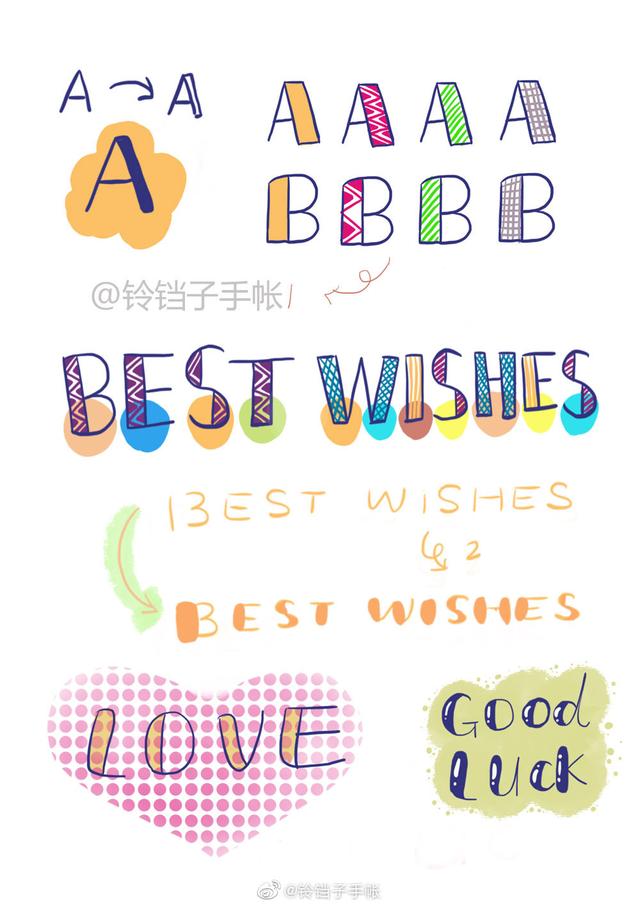 A → A
A
A A A A
B B B B
@铃铛子手帐
BEST WISHES
BEST WISHES
2
BEST WISHES
LOVE
GOOd
LUcK
@铃铛子手帐